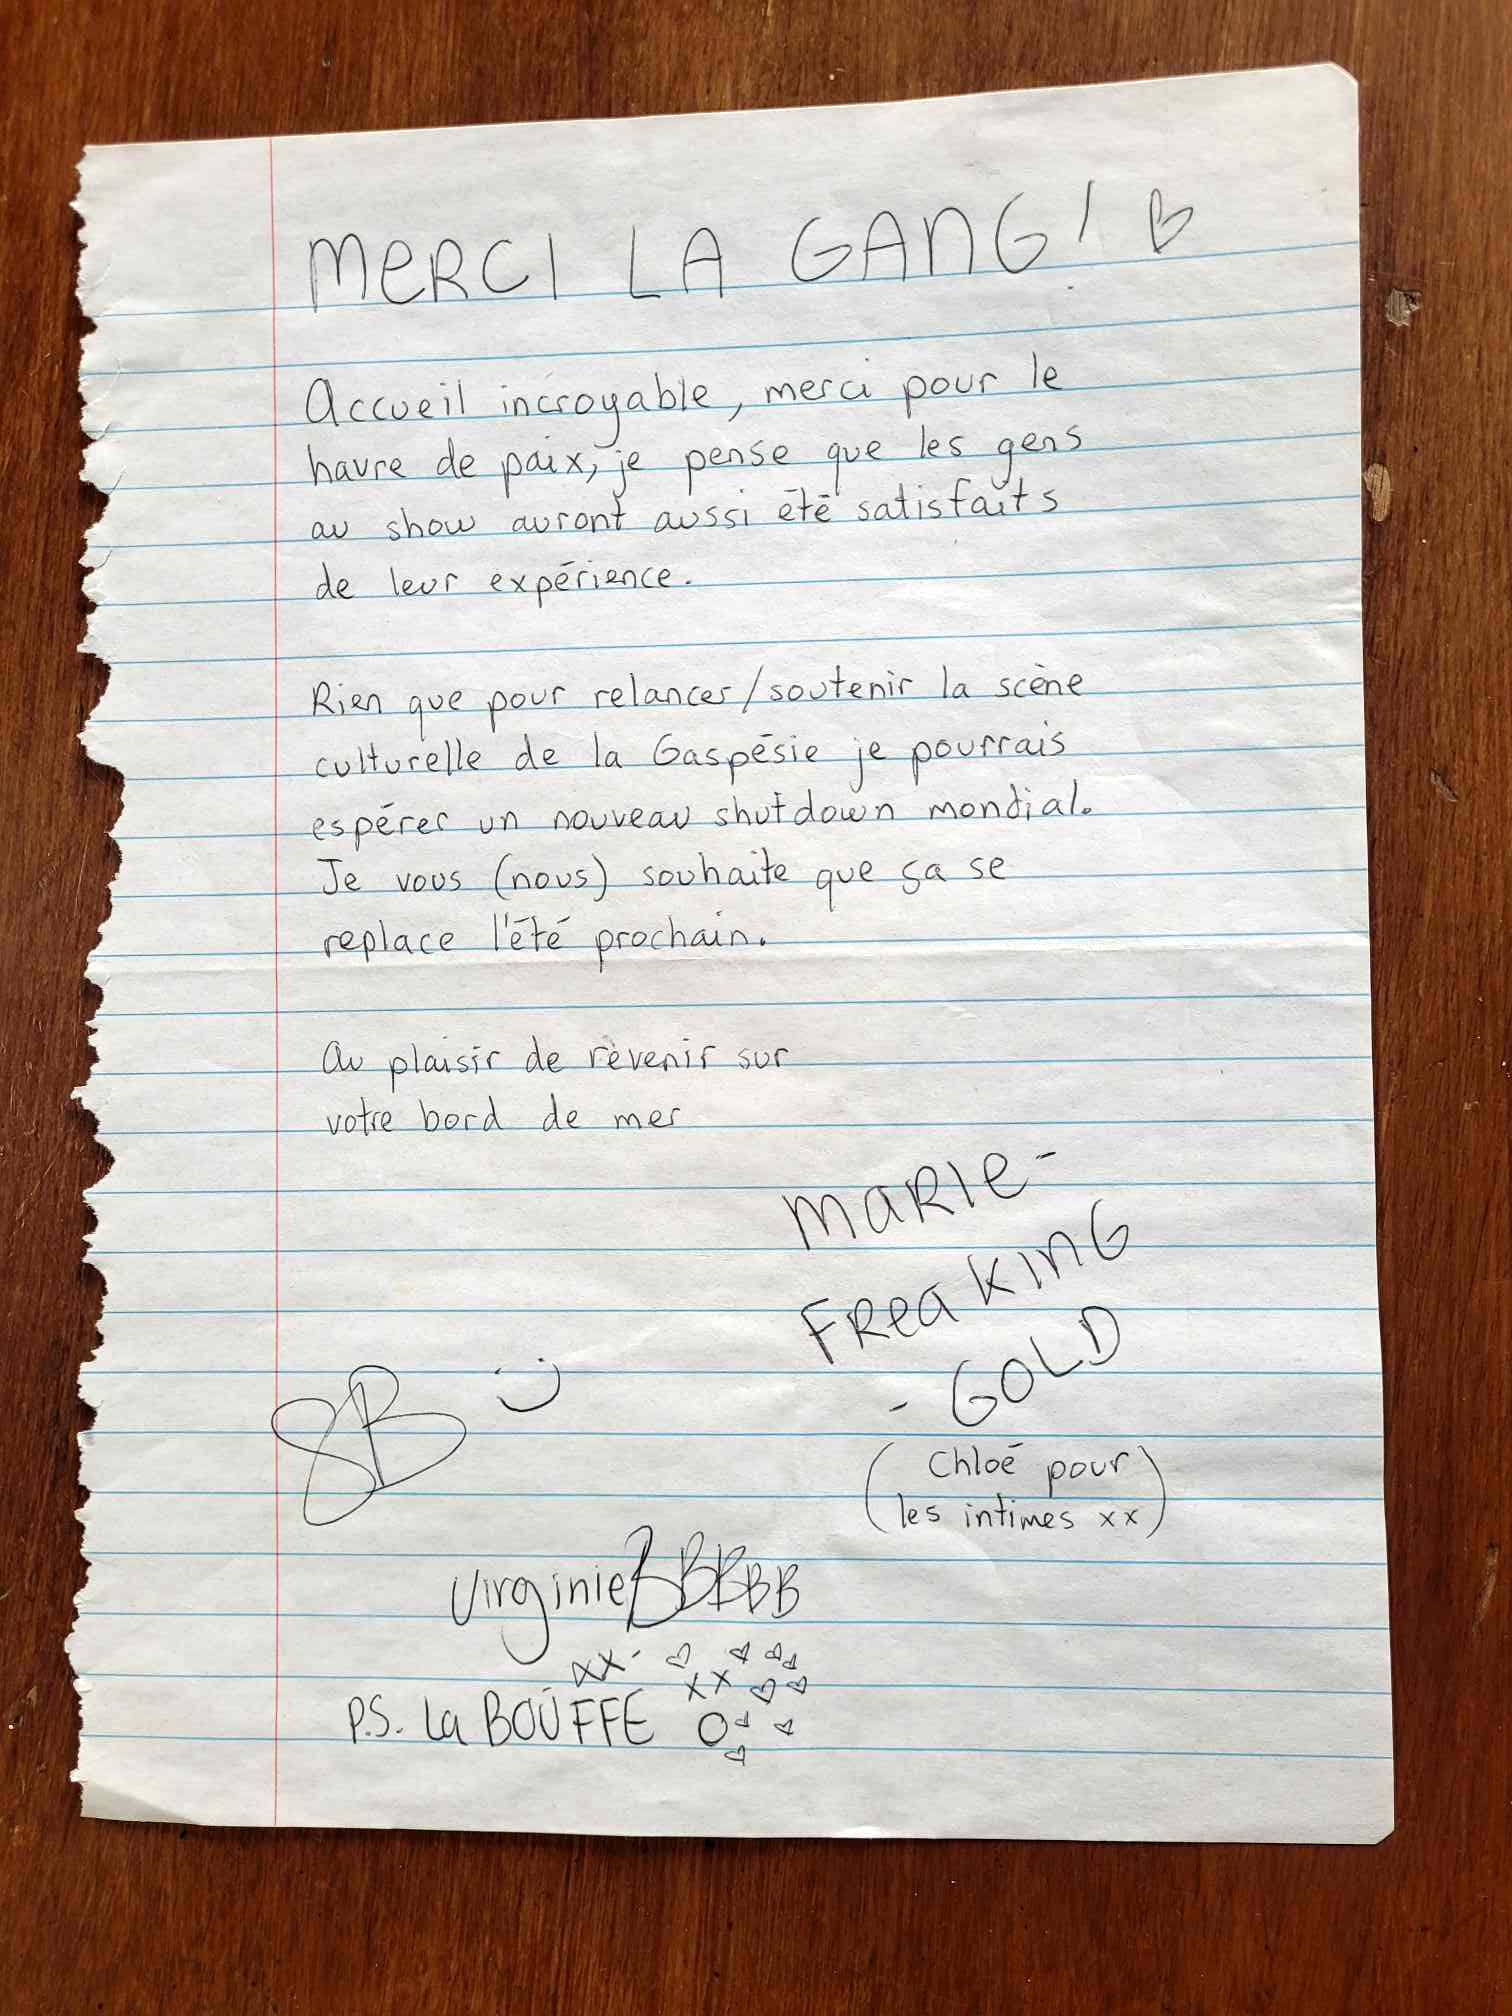 MERCI LA GANG! ♡
Accueil incroyable, merci pour le
havre de paix, je pense que les gens
au show auront aussi été satisfaits
de leur expérience.
Rien que pour relancer/soutenir la scène
culturelle de la Gaspésie je pourrais
espérer un nouveau shutdown mondial.
Je vous (nous) souhaite que ça se
replace l'été prochain.
Au plaisir de revenir sur
votre bord de mer
MARIE-
FREAKING
-GOLD
(Chloé pour
les intimes xx)
SB :)
Virginie BBBBB
xx
P.S. La BOUFFE xx